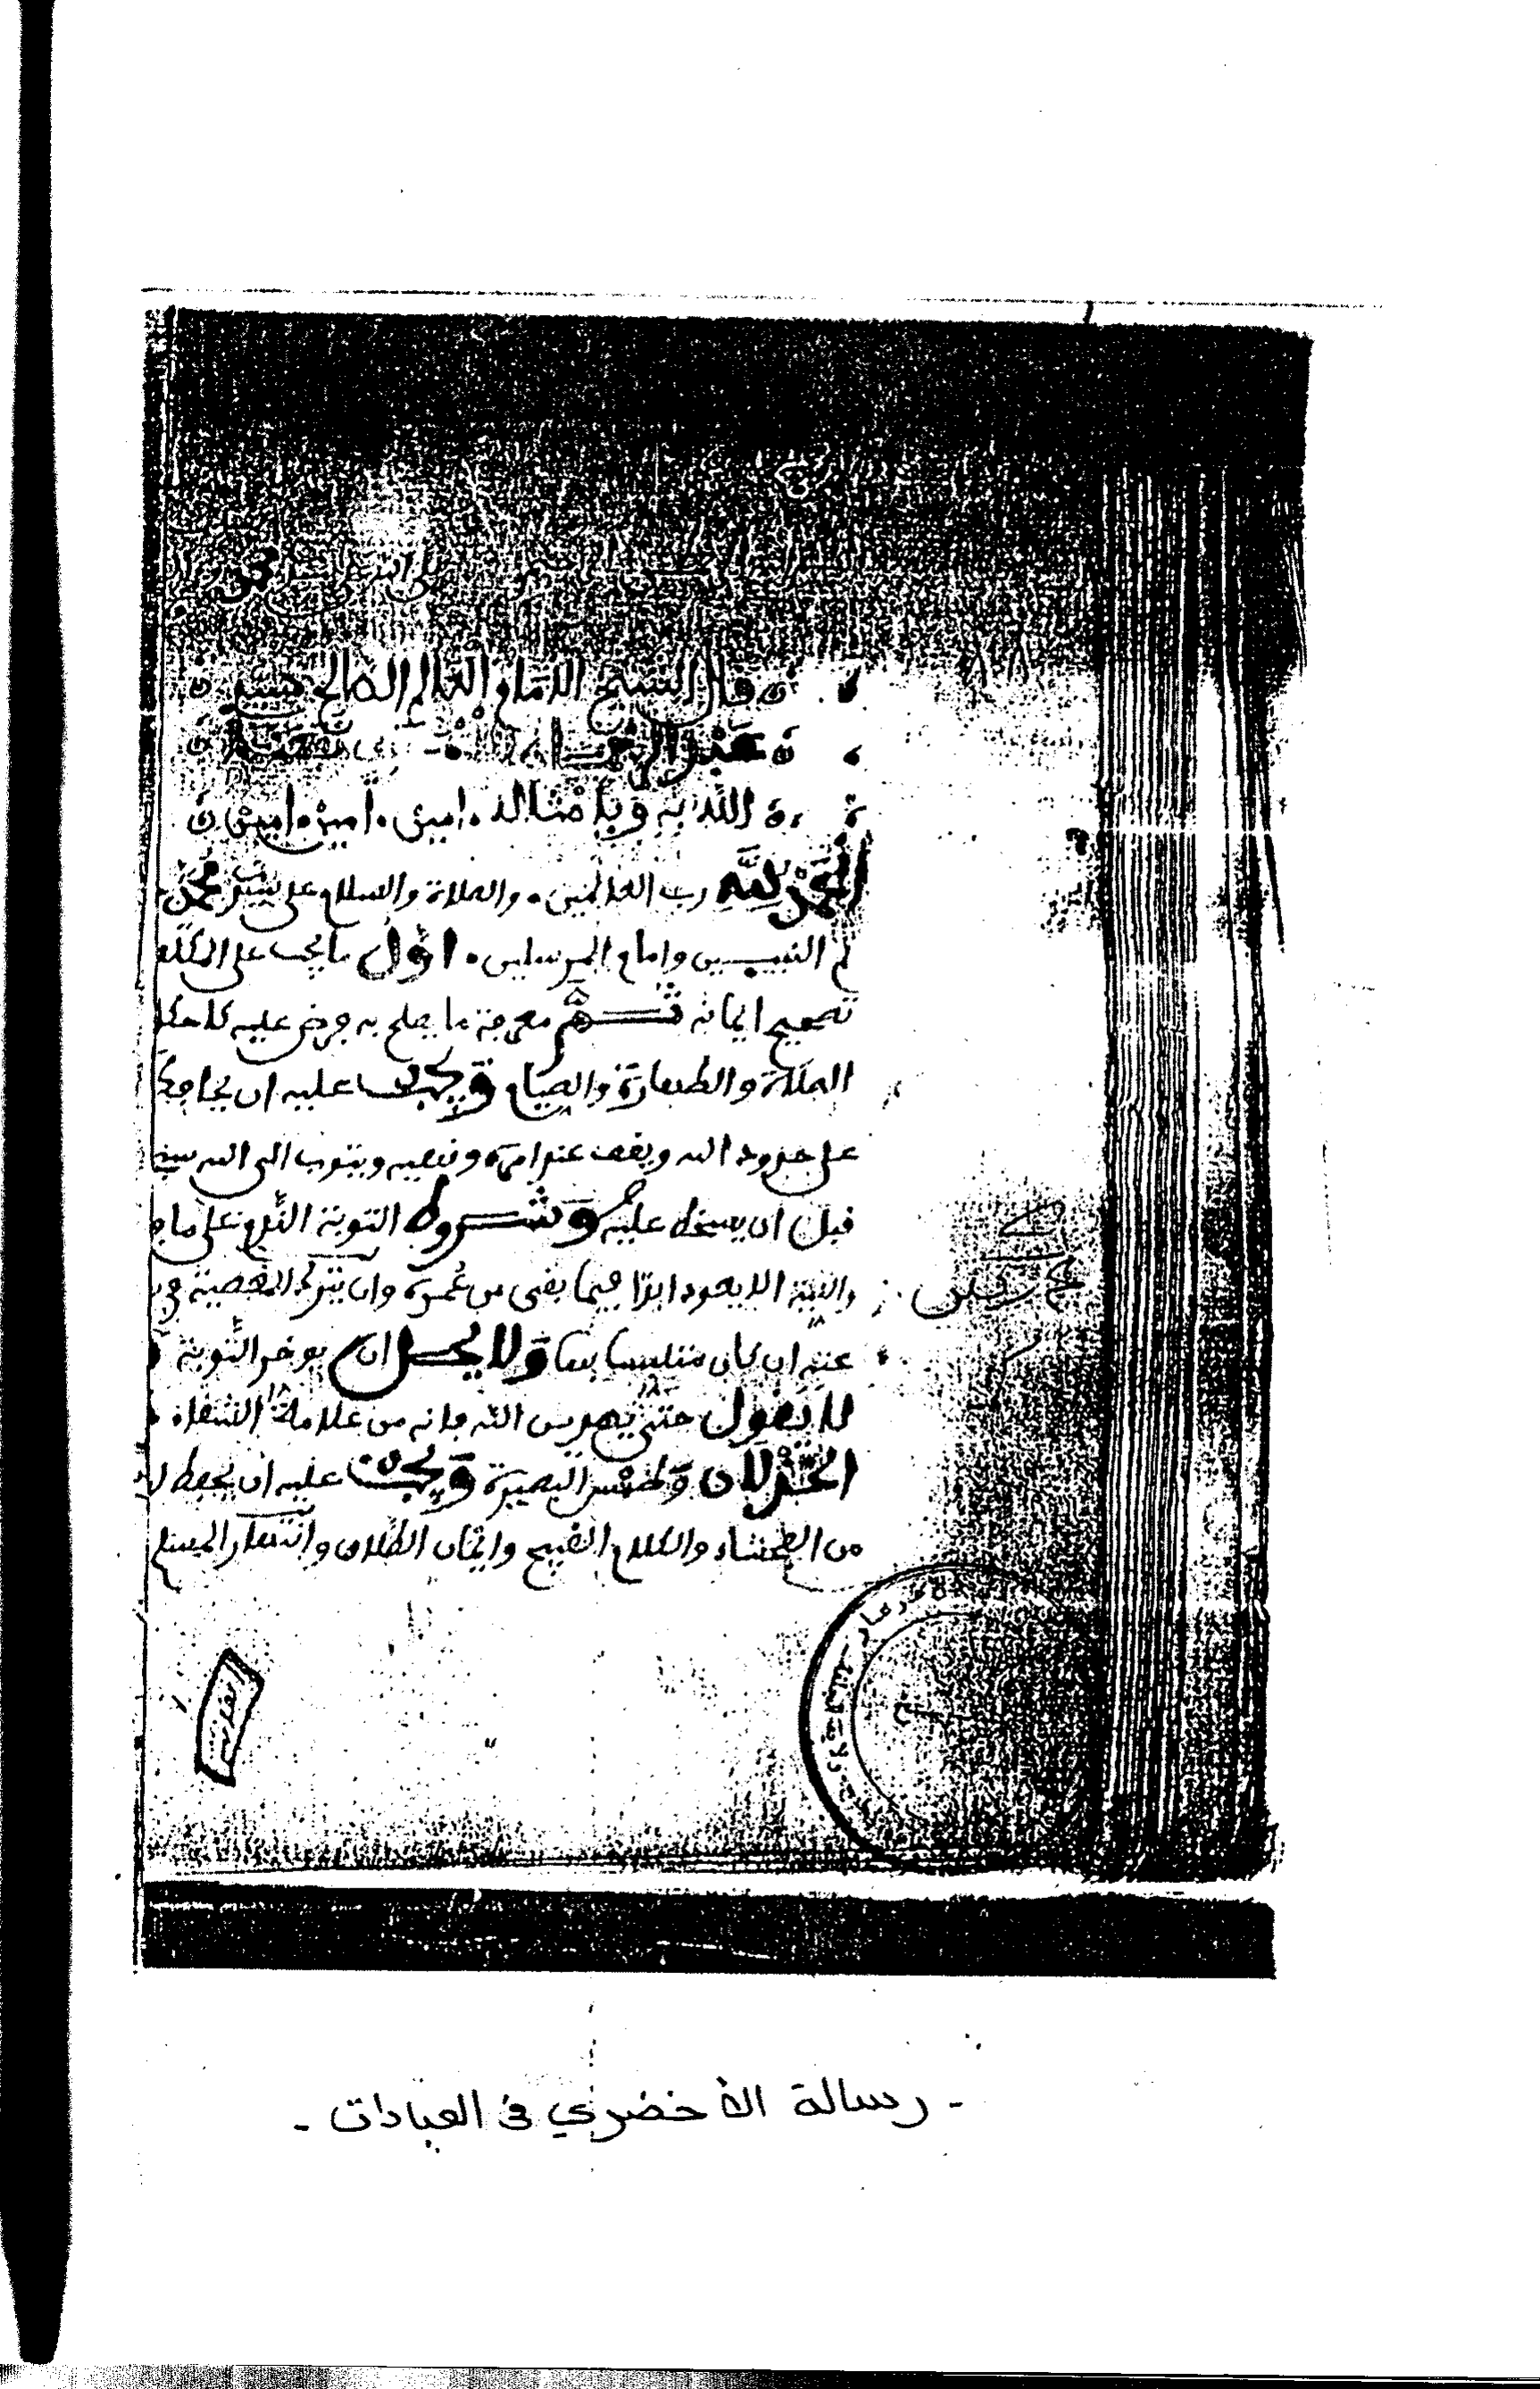 قال الشيخ الامام العالم الصالح سيد
عبد الرحمن
الله به وبامثاله . امين . امين . امين
الحمد لله رب العالمين . والصلاة والسلام على سيدنا محمد
تم النبيين وامام المرسلين . اول ما يجب على المكلف
تصحيح ايمانه ثم معرفة ما يصلح به فرض عليه كاحكا
الصلاة والطهارة والصيام ويجب عليه ان يحافظ
على حدود الله ويقف عند امره ونهيه ويتوب الى الله سبحا
قبل ان يسخط عليه وشروط التوبة الندم على ما ف
والنية الا يعود ابدا فيما بقى من عمره وان يترك المعصية في
عته ان كان متلبسا بها ولا يحل ان يوخر التوبة
لا يقول حتى يهدين الله فانه من علامة الشقاء
الخذلان وطمس البصيرة ويجب عليه ان يحفظ ل
من الفحشاء والكلام القبيح وايمان الطلاق وانتهار المسلم
- رسالة الأخضري في العبادات -